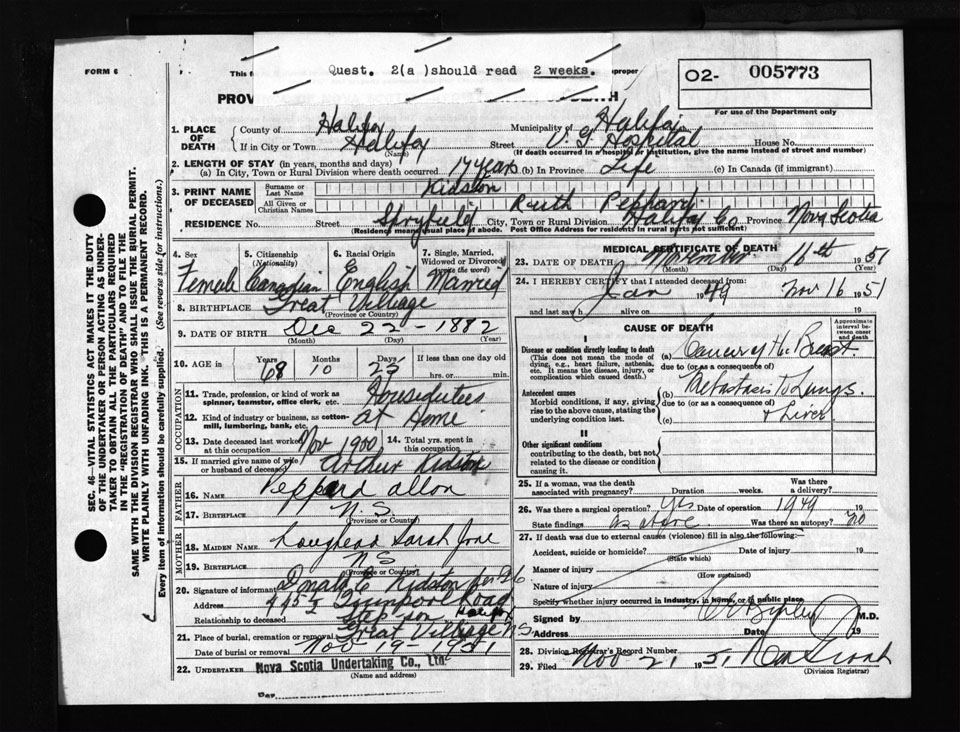 FORM 6
This f
Quest. 2(a )should read 2 weeks.
proper
O2- 005773
For use of the Department only
PROV
DEATH
1. PLACE OF DEATH
County of Halifax
Municipality of Halifax
If in City or Town Halifax (Name) Street V. G. Hospital House No.
(If death occurred in a hospital or institution, give the name instead of street and number)
2. LENGTH OF STAY (in years, months and days)
(a) In City, Town or Rural Division where death occurred 17 years (b) In Province Life (c) In Canada (if immigrant)
3. PRINT NAME OF DECEASED
Surname or Last Name Kidston
All Given or Christian Names Ruth Peppard
RESIDENCE No. Street Spryfield City, Town or Rural Division Halifax Co Province Nova Scotia
(Residence means usual place of abode. Post Office Address for residents in rural parts not sufficient)
4. Sex Female
5. Citizenship (Nationality) Canadian
6. Racial Origin English
7. Single, Married, Widowed or Divorced (write the word) Married
8. BIRTHPLACE Great Village
(Province or Country)
9. DATE OF BIRTH Dec 22 - 1882
(Month) (Day) (Year)
10. AGE in Years 68 Months 10 Days 25 If less than one day old
hrs. or min.
OCCUPATION
11. Trade, profession, or kind of work as spinner, teamster, office clerk, etc. Houseduties
12. Kind of industry or business, as cotton-mill, lumbering, bank, etc. at Home
13. Date deceased last worked at this occupation Nov 1950
14. Total yrs. spent in this occupation
15. If married give name of wife or husband of deceased Arthur Kidston
FATHER
16. NAME Peppard allon
17. BIRTHPLACE N.S.
(Province or Country)
MOTHER
18. MAIDEN NAME Loughead Sarah Jane
19. BIRTHPLACE N S
(Province or Country)
20. Signature of informant Donald C Kidston
Address Quinpool Road
Relationship to deceased Step son
21. Place of burial, cremation or removal Great Village N S
Date of burial or removal Nov - 19 - 1951
22. UNDERTAKER Nova Scotia Undertaking Co., Ltd.
(Name and address)
MEDICAL CERTIFICATE OF DEATH
23. DATE OF DEATH November 16th 1951
(Month) (Day) (Year)
24. I HEREBY CERTIFY that I attended deceased from
Jan 1949 Nov 16 1951
and last saw h alive on 19
CAUSE OF DEATH
Approximate interval between onset and death
I
Disease or condition directly leading to death (This does not mean the mode of dying, e.g., heart failure, asthenia, etc. It means the disease, injury, or complication which caused death.)
(a) Cancer of the Breast
due to (or as a consequence of)
Antecedent causes
Morbid conditions, if any, giving rise to the above cause, stating the underlying condition last.
(b) Metastasis to Lungs.
due to (or as a consequence of)
(c) & Liver
II
Other significant conditions
contributing to the death, but not related to the disease or condition causing it.
25. If a woman, was the death associated with pregnancy? Duration weeks. Was there a delivery?
26. Was there a surgical operation? Yes Date of operation 1949
State findings as above. Was there an autopsy? no
27. If death was due to external causes (violence) fill in also the following:
Accident, suicide or homicide? Date of injury 19
(State which)
Manner of injury
(How sustained)
Nature of injury
Specify whether injury occurred in industry, in home, or in public place
Signed by M.D.
Address Date 19
28. Division Registrar's Record Number
29. Filed Nov 21 1951
(Division Registrar)
SEC. 46—VITAL STATISTICS ACT MAKES IT THE DUTY OF THE UNDERTAKER OR PERSON ACTING AS UNDERTAKER TO OBTAIN ALL THE PARTICULARS REQUIRED IN THE "REGISTRATION OF DEATH" AND TO FILE THE SAME WITH THE DIVISION REGISTRAR WHO SHALL ISSUE THE BURIAL PERMIT.
WRITE PLAINLY WITH UNFADING INK. THIS IS A PERMANENT RECORD.
Every item of information should be carefully supplied. (See reverse side for instructions.)